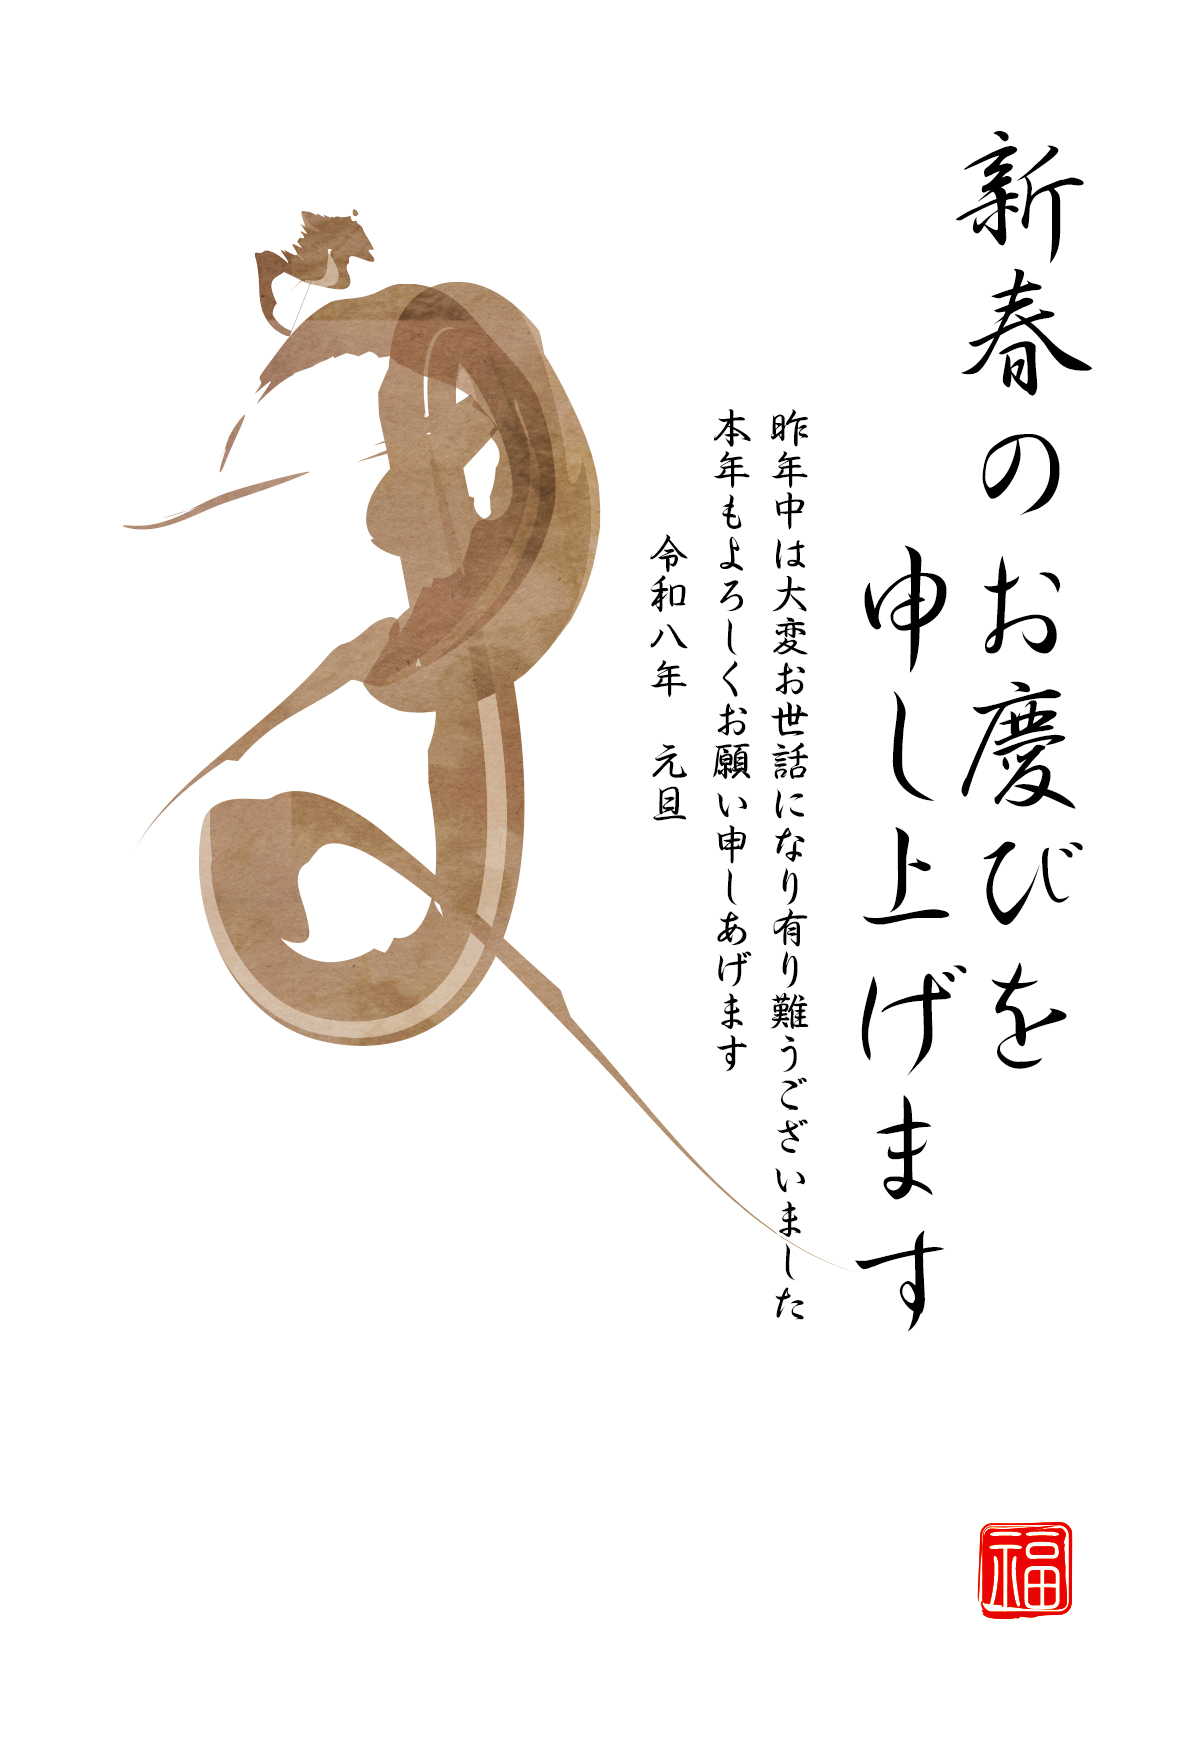 新春のお慶びを
申し上げます
昨年中は大変お世話になり有り難うございました
本年もよろしくお願い申しあげます
令和八年　元旦
福